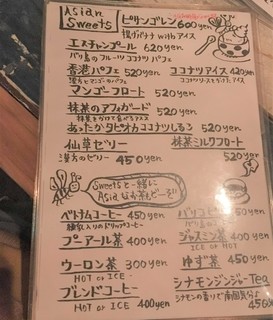 Asian Sweets
ピサンゴレン 600yen
揚げバナナ with アイス
エスチャンプール 620yen
バリ島のフルーツココナツパフェ
香港パフェ 520yen
ココナツアイス 420yen
マンゴーフロート 520yen
抹茶のアフォガード 520yen
抹茶をかけて食べるアイス
あったかタピオカココナツしるこ 520yen
仙草ゼリー
抹茶ミルクフロート
450yen
520yen
Sweetsと一緒に
Asiaなお茶もどーぞ
ベトナムコーヒー 450yen
練乳入りのドリップコーヒー
バリコーヒー
プーアール茶 400yen
ジャスミン茶 400yen
ICE or HOT
ウーロン茶 300yen
HOT or ICE
ゆず茶 450yen
ブレンドコーヒー 400yen
HOT or ICE
シナモンジンジャーTea
シナモンの香りで南国気分